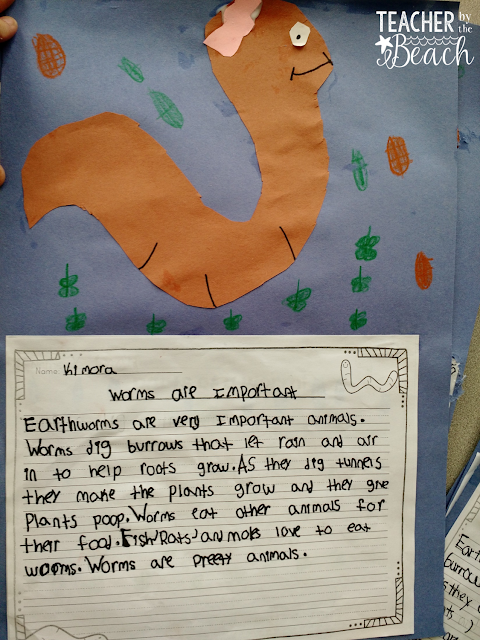 TEACHER by the Beach
Name: Kimora
Worms are Important
Earthworms are very Important animals.
Worms dig burrows that let rain and air
in to help roots grow. As they dig tunners
they make the plants grow and they give
Plants poop. Worms eat other animals for
their food. Fish, Rats, and moles love to eat
worms. Worms are preety animals.
Eart
burrow
they